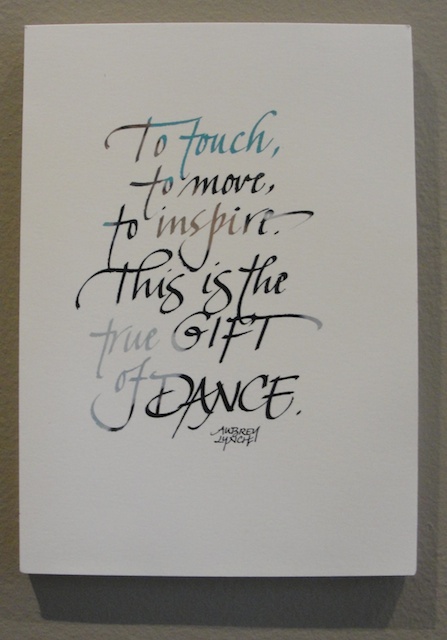 To touch,
to move,
to inspire.
This is the
true GIFT
of DANCE.
AUBREY
LYNCH